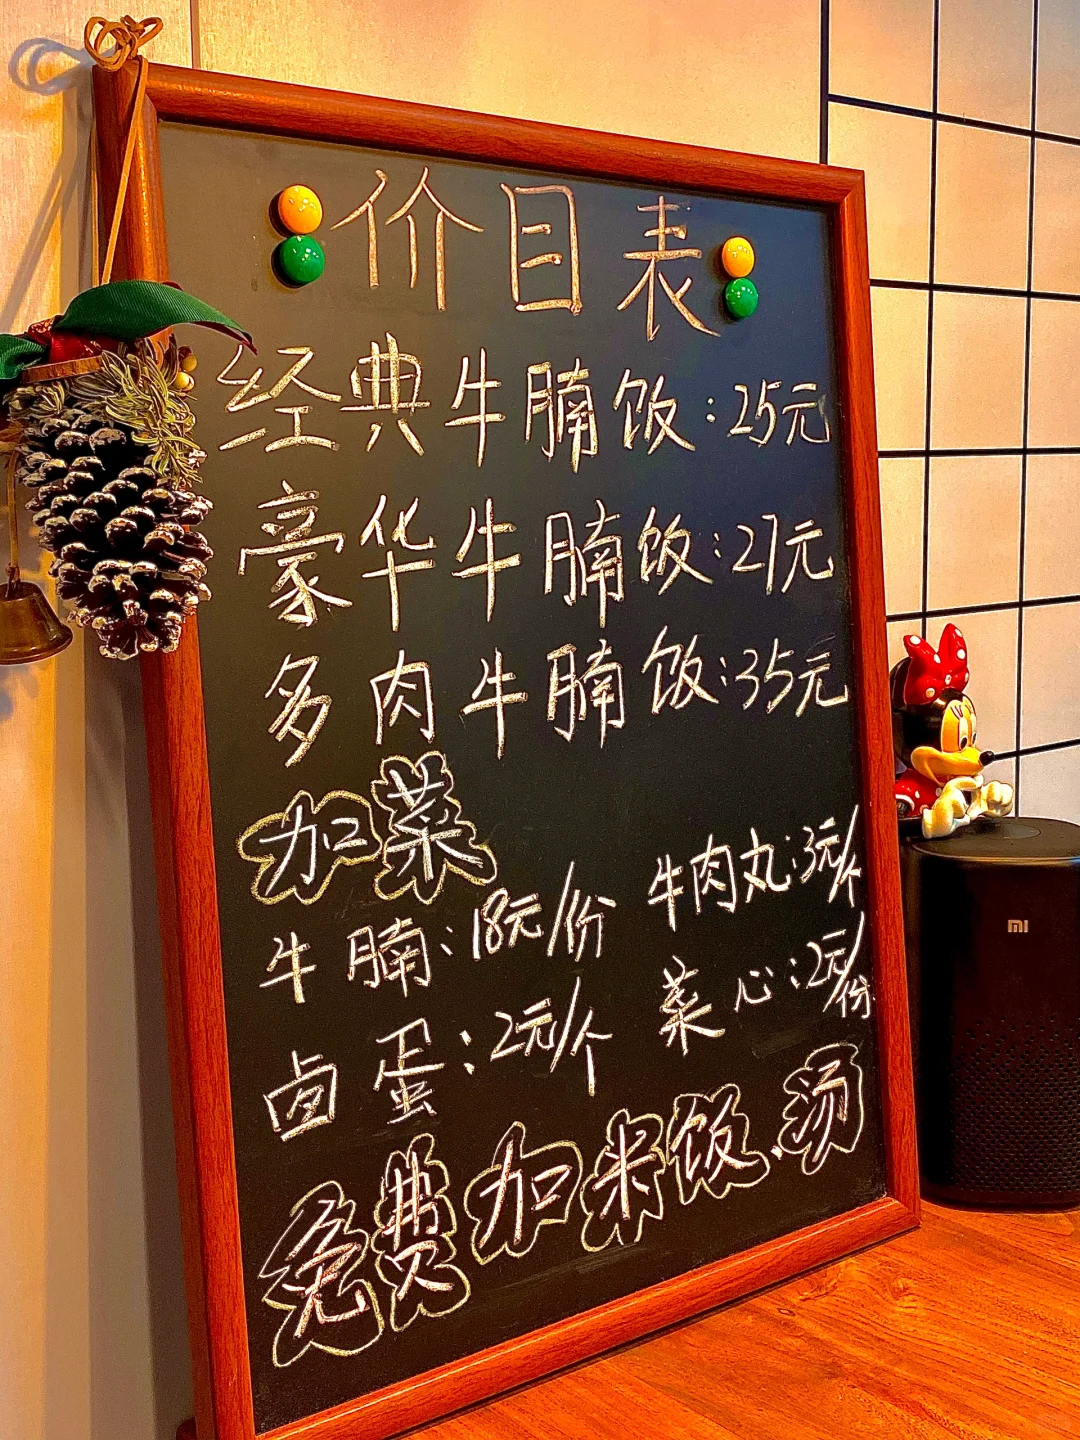 价目表
经典牛腩饭:25元
豪华牛腩饭:27元
多肉牛腩饭:35元
加菜
牛腩:18元/份 牛肉丸:3元/个
卤蛋:2元/个 菜心:2元/份
免费加米饭.汤
mi